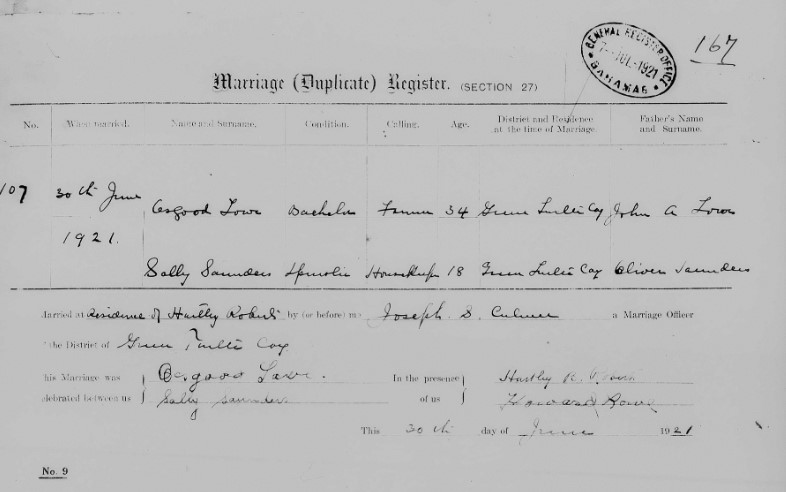 167
GENERAL REGISTER OFFICE
7 - JUL - 1921
BAHAMAS
Marriage (Duplicate) Register. (SECTION 27)
No. When married. Name and Surname. Condition. Calling. Age. District and Residence at the time of Marriage. Father's Name and Surname.
107 30th June 1921. Osgood Lowe Bachelor Farmer 34 Green Turtle Cay John A Lowe
Sally Saunders Spinster 18 Green Turtle Cay Oliver Saunders
Married at Residence of Hartley Roberts by (or before) me Joseph S. Culmer a Marriage Officer
the District of Green Turtle Cay
his Marriage was Osgood Lowe. In the presence Hartley R.
elebrated between us Sally Saunders of us Howard
This 30th day of June 1921
No. 9